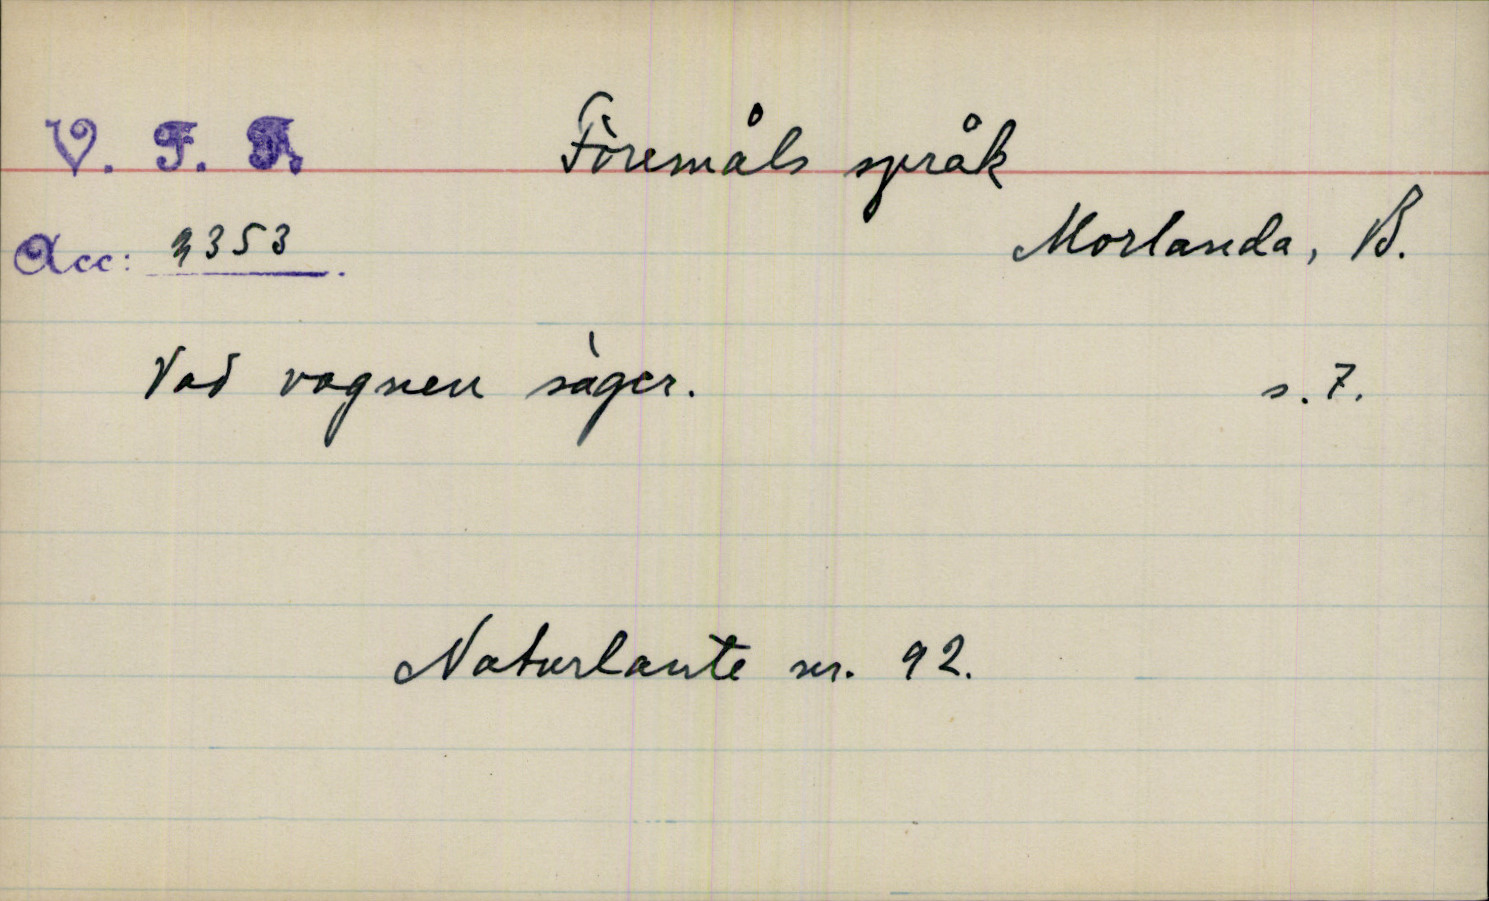 V. F. R. Föremåls språk
Acc: 2353. Morlanda, B.
Vad vagnen säger. s. 7.
Naturlaute nr. 92.